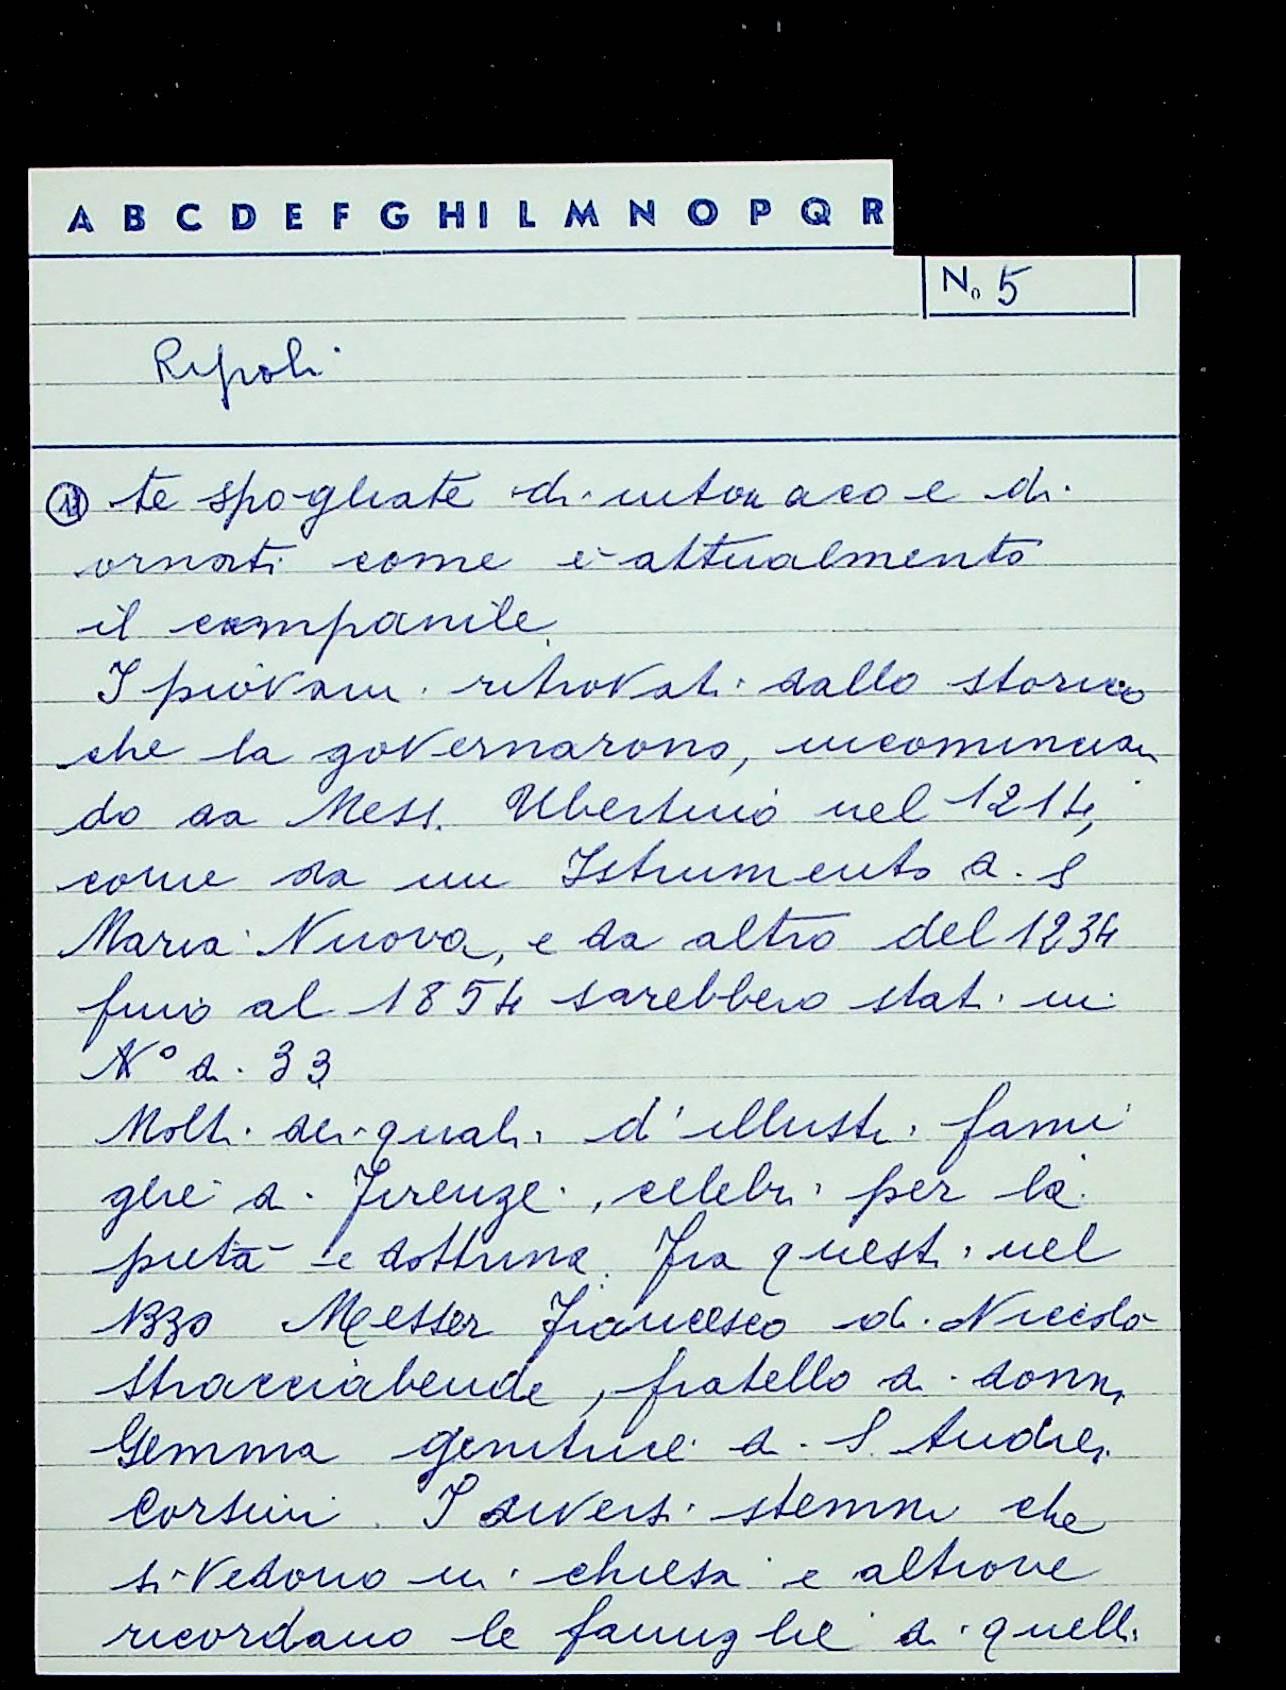 A B C D E F G H I L M N O P Q R
N. 5
Ripoli
11 te spogliate di intonaco e di
ornati come è attualmente
il campanile
I piovani ritrovati dallo storico
che la governarono, incomincian
do da Mess. Ubertino nel 1214,
come da un Istrumento di S
Maria Nuova, e da altro del 1234
fino al 1854 sarebbero stati in
N° di 33
Molti dei quali d'illustri fami
glie di Firenze, celebri per la
pietà e dottrina. Fra questi nel
1330 Messer Francesco di Niccolò
Stracciabende, fratello di donna
Gemma genitrice di S Andrea
Corsini. I diversi stemmi che
si vedono in chiesa e altrove
ricordano le famiglie di quelli